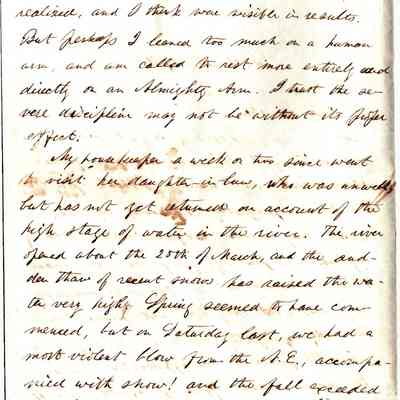 realized, and I think were visible in results.
But perhaps I leaned too much on a human
arm, and am called to rest more entirely and
directly on an Almighty Arm. I trust the se-
vere discipline may not be without its proper
effect.
My housekeeper a week or two since went
to visit her daughter-in-law, who was unwell,
but has not yet returned on account of the
high stage of water in the river. The river
opened about the 25th of March, and the sud-
den thaw of recent snow has raised the wa-
ter very high. Spring seemed to have com-
menced, but on Saturday last, we had a
most violent blow from the N.E., accompa-
nied with snow! and the fall exceeded